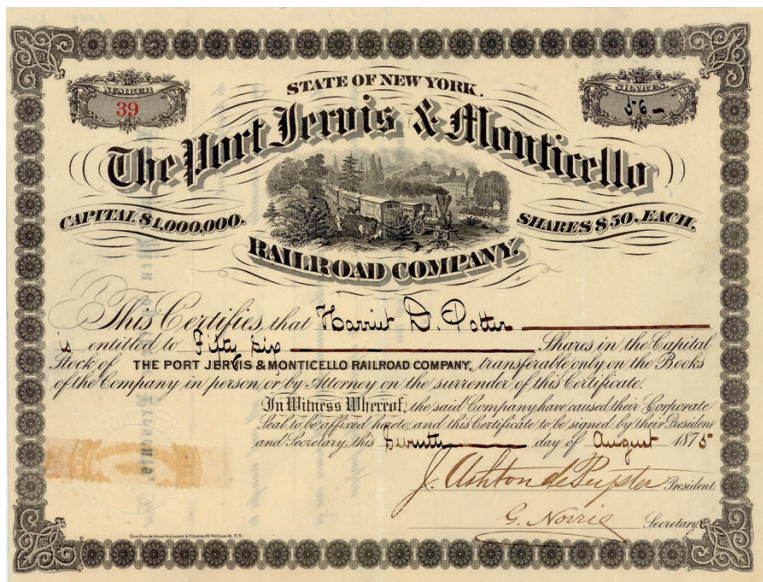 NUMBER
39
STATE OF NEW YORK.
SHARES
56
The Port Jervis & Monticello
CAPITAL $1,000,000.
SHARES $50, EACH.
RAILROAD COMPANY.
This Certifies, that Harriet D. Potter
is entitled to Fifty six Shares in the Capital
Stock of THE PORT JERVIS & MONTICELLO RAILROAD COMPANY, transferable only on the Books
of the Company in person, or by Attorney on the surrender of this Certificate.
In Witness Whereof, the said Company have caused their Corporate
Seal to be affixed hereto, and this Certificate to be signed by their President
and Secretary, this Seventh day of August 1875
J. Ashton de Peyster President.
G. Norris Secretary